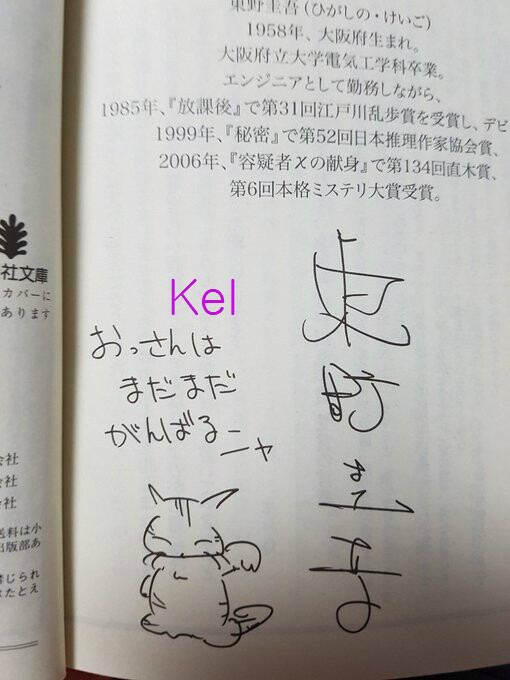 東野圭吾(ひがしの・けいご)
1958年、大阪府生まれ。
大阪府立大学電気工学科卒業。
エンジニアとして勤務しながら、
1985年、『放課後』で第31回江戸川乱歩賞を受賞し、デビ
1999年、『秘密』で第52回日本推理作家協会賞、
2006年、『容疑者χの献身』で第134回直木賞、
第6回本格ミステリ大賞受賞。
Kel
おっさんは
まだまだ
がんばるーヤ
東野圭吾
社文庫
カバーに
あります
会社
会社
会社
送料は小
出版部あ
禁じられ
はたとえ